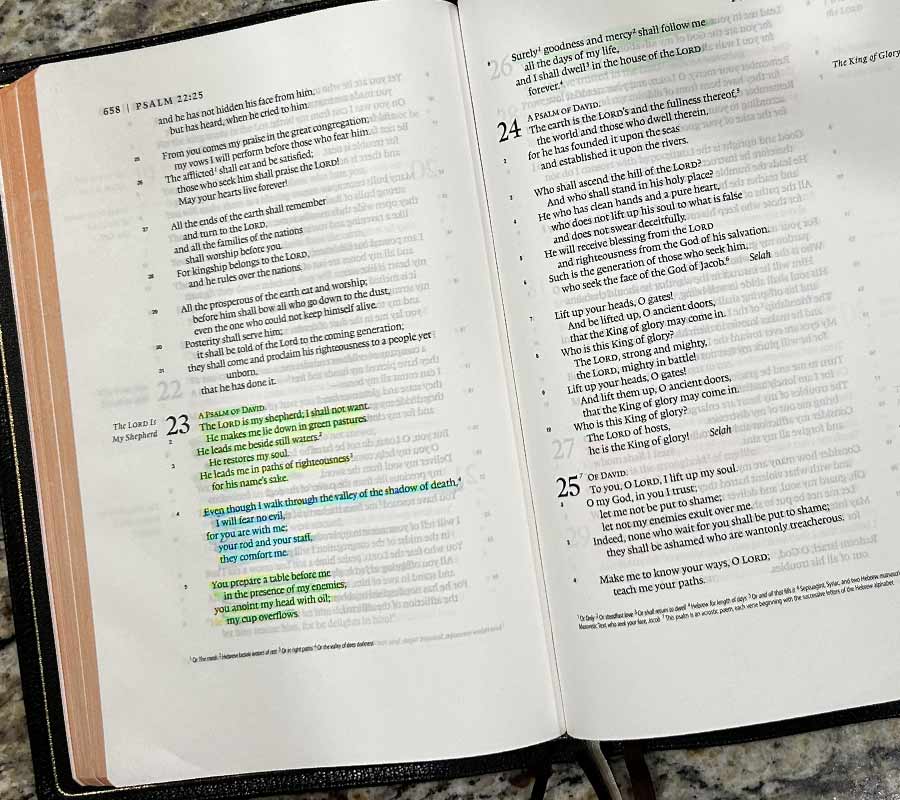 658 || PSALM 22:25
and he has not hidden his face from him,
but has heard, when he cried to him.
25 From you comes my praise in the great congregation;
my vows I will perform before those who fear him.
26 The afflicted¹ shall eat and be satisfied;
those who seek him shall praise the LORD!
May your hearts live forever!
27 All the ends of the earth shall remember
and turn to the LORD,
and all the families of the nations
shall worship before you.
28 For kingship belongs to the LORD,
and he rules over the nations.
29 All the prosperous of the earth eat and worship;
before him shall bow all who go down to the dust,
even the one who could not keep himself alive.
30 Posterity shall serve him;
it shall be told of the Lord to the coming generation;
31 they shall come and proclaim his righteousness to a people yet
unborn,
that he has done it.
The LORD Is
My Shepherd
23 A PSALM OF DAVID.
The LORD is my shepherd; I shall not want.
2 He makes me lie down in green pastures.
He leads me beside still waters.²
3 He restores my soul.
He leads me in paths of righteousness³
for his name's sake.
4 Even though I walk through the valley of the shadow of death,⁴
I will fear no evil,
for you are with me;
your rod and your staff,
they comfort me.
5 You prepare a table before me
in the presence of my enemies;
you anoint my head with oil;
my cup overflows.
¹ Or The meek ² Hebrew beside waters of rest ³ Or in right paths ⁴ Or the valley of deep darkness
6 Surely¹ goodness and mercy² shall follow me
all the days of my life,
and I shall dwell³ in the house of the LORD
forever.⁴
The King of Glory
24 A PSALM OF DAVID.
The earth is the LORD's and the fullness thereof,⁵
the world and those who dwell therein,
2 for he has founded it upon the seas
and established it upon the rivers.
3 Who shall ascend the hill of the LORD?
And who shall stand in his holy place?
4 He who has clean hands and a pure heart,
who does not lift up his soul to what is false
and does not swear deceitfully.
5 He will receive blessing from the LORD
and righteousness from the God of his salvation.
6 Such is the generation of those who seek him,
who seek the face of the God of Jacob.⁶ Selah
7 Lift up your heads, O gates!
And be lifted up, O ancient doors,
that the King of glory may come in.
8 Who is this King of glory?
The LORD, strong and mighty,
the LORD, mighty in battle!
9 Lift up your heads, O gates!
And lift them up, O ancient doors,
that the King of glory may come in.
10 Who is this King of glory?
The LORD of hosts,
he is the King of glory! Selah
25⁷ OF DAVID.
To you, O LORD, I lift up my soul.
2 O my God, in you I trust;
let me not be put to shame;
let not my enemies exult over me.
3 Indeed, none who wait for you shall be put to shame;
they shall be ashamed who are wantonly treacherous.
4 Make me to know your ways, O LORD;
teach me your paths.
¹ Or Only ² Or steadfast love ³ Or shall return to dwell ⁴ Hebrew for length of days ⁵ Or and all that fills it ⁶ Septuagint, Syriac, and two Hebrew manuscripts
Masoretic Text who seek your face, Jacob ⁷ This psalm is an acrostic poem, each verse beginning with the successive letters of the Hebrew alphabet